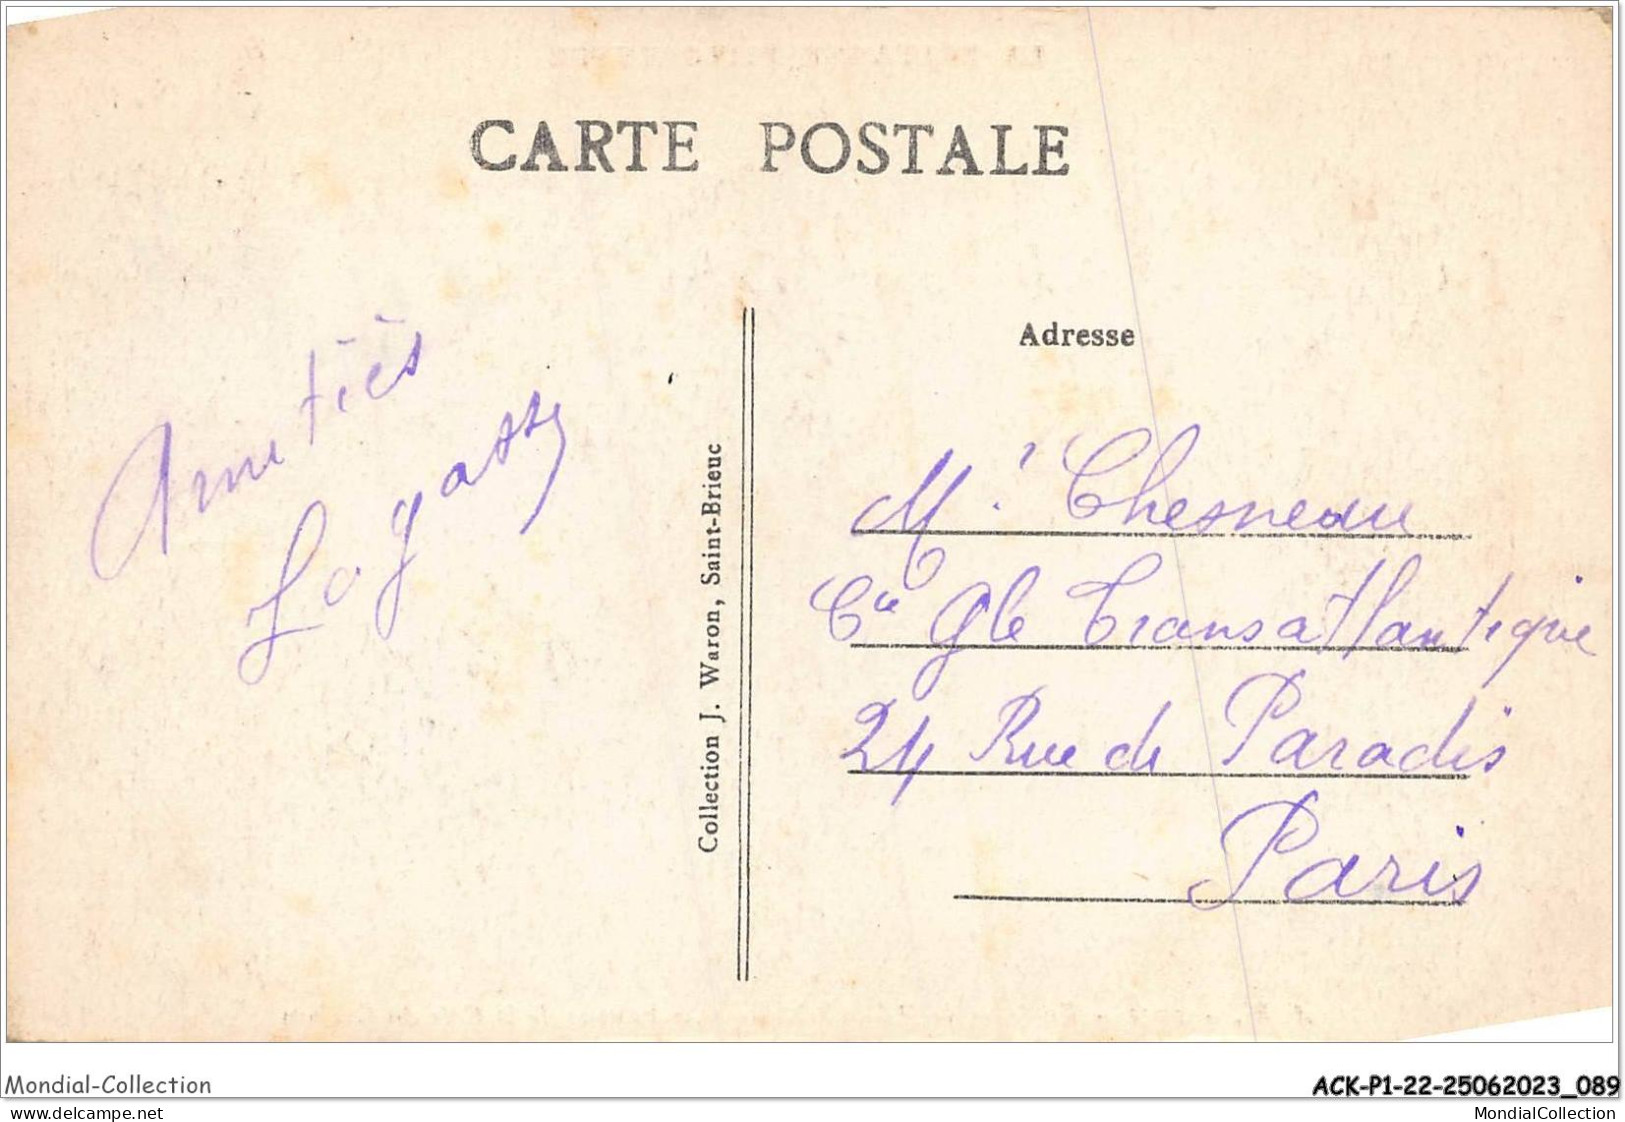 CARTE POSTALE
Amitiés
Adresse
Mr Chesneau
Cie Gle Transatlantique
24 Rue de Paradis
Paris
Collection J. Waron, Saint-Brieuc
Mondial-Collection
ACK-P1-22-25062023_089
www.delcampe.net
MondialCollection